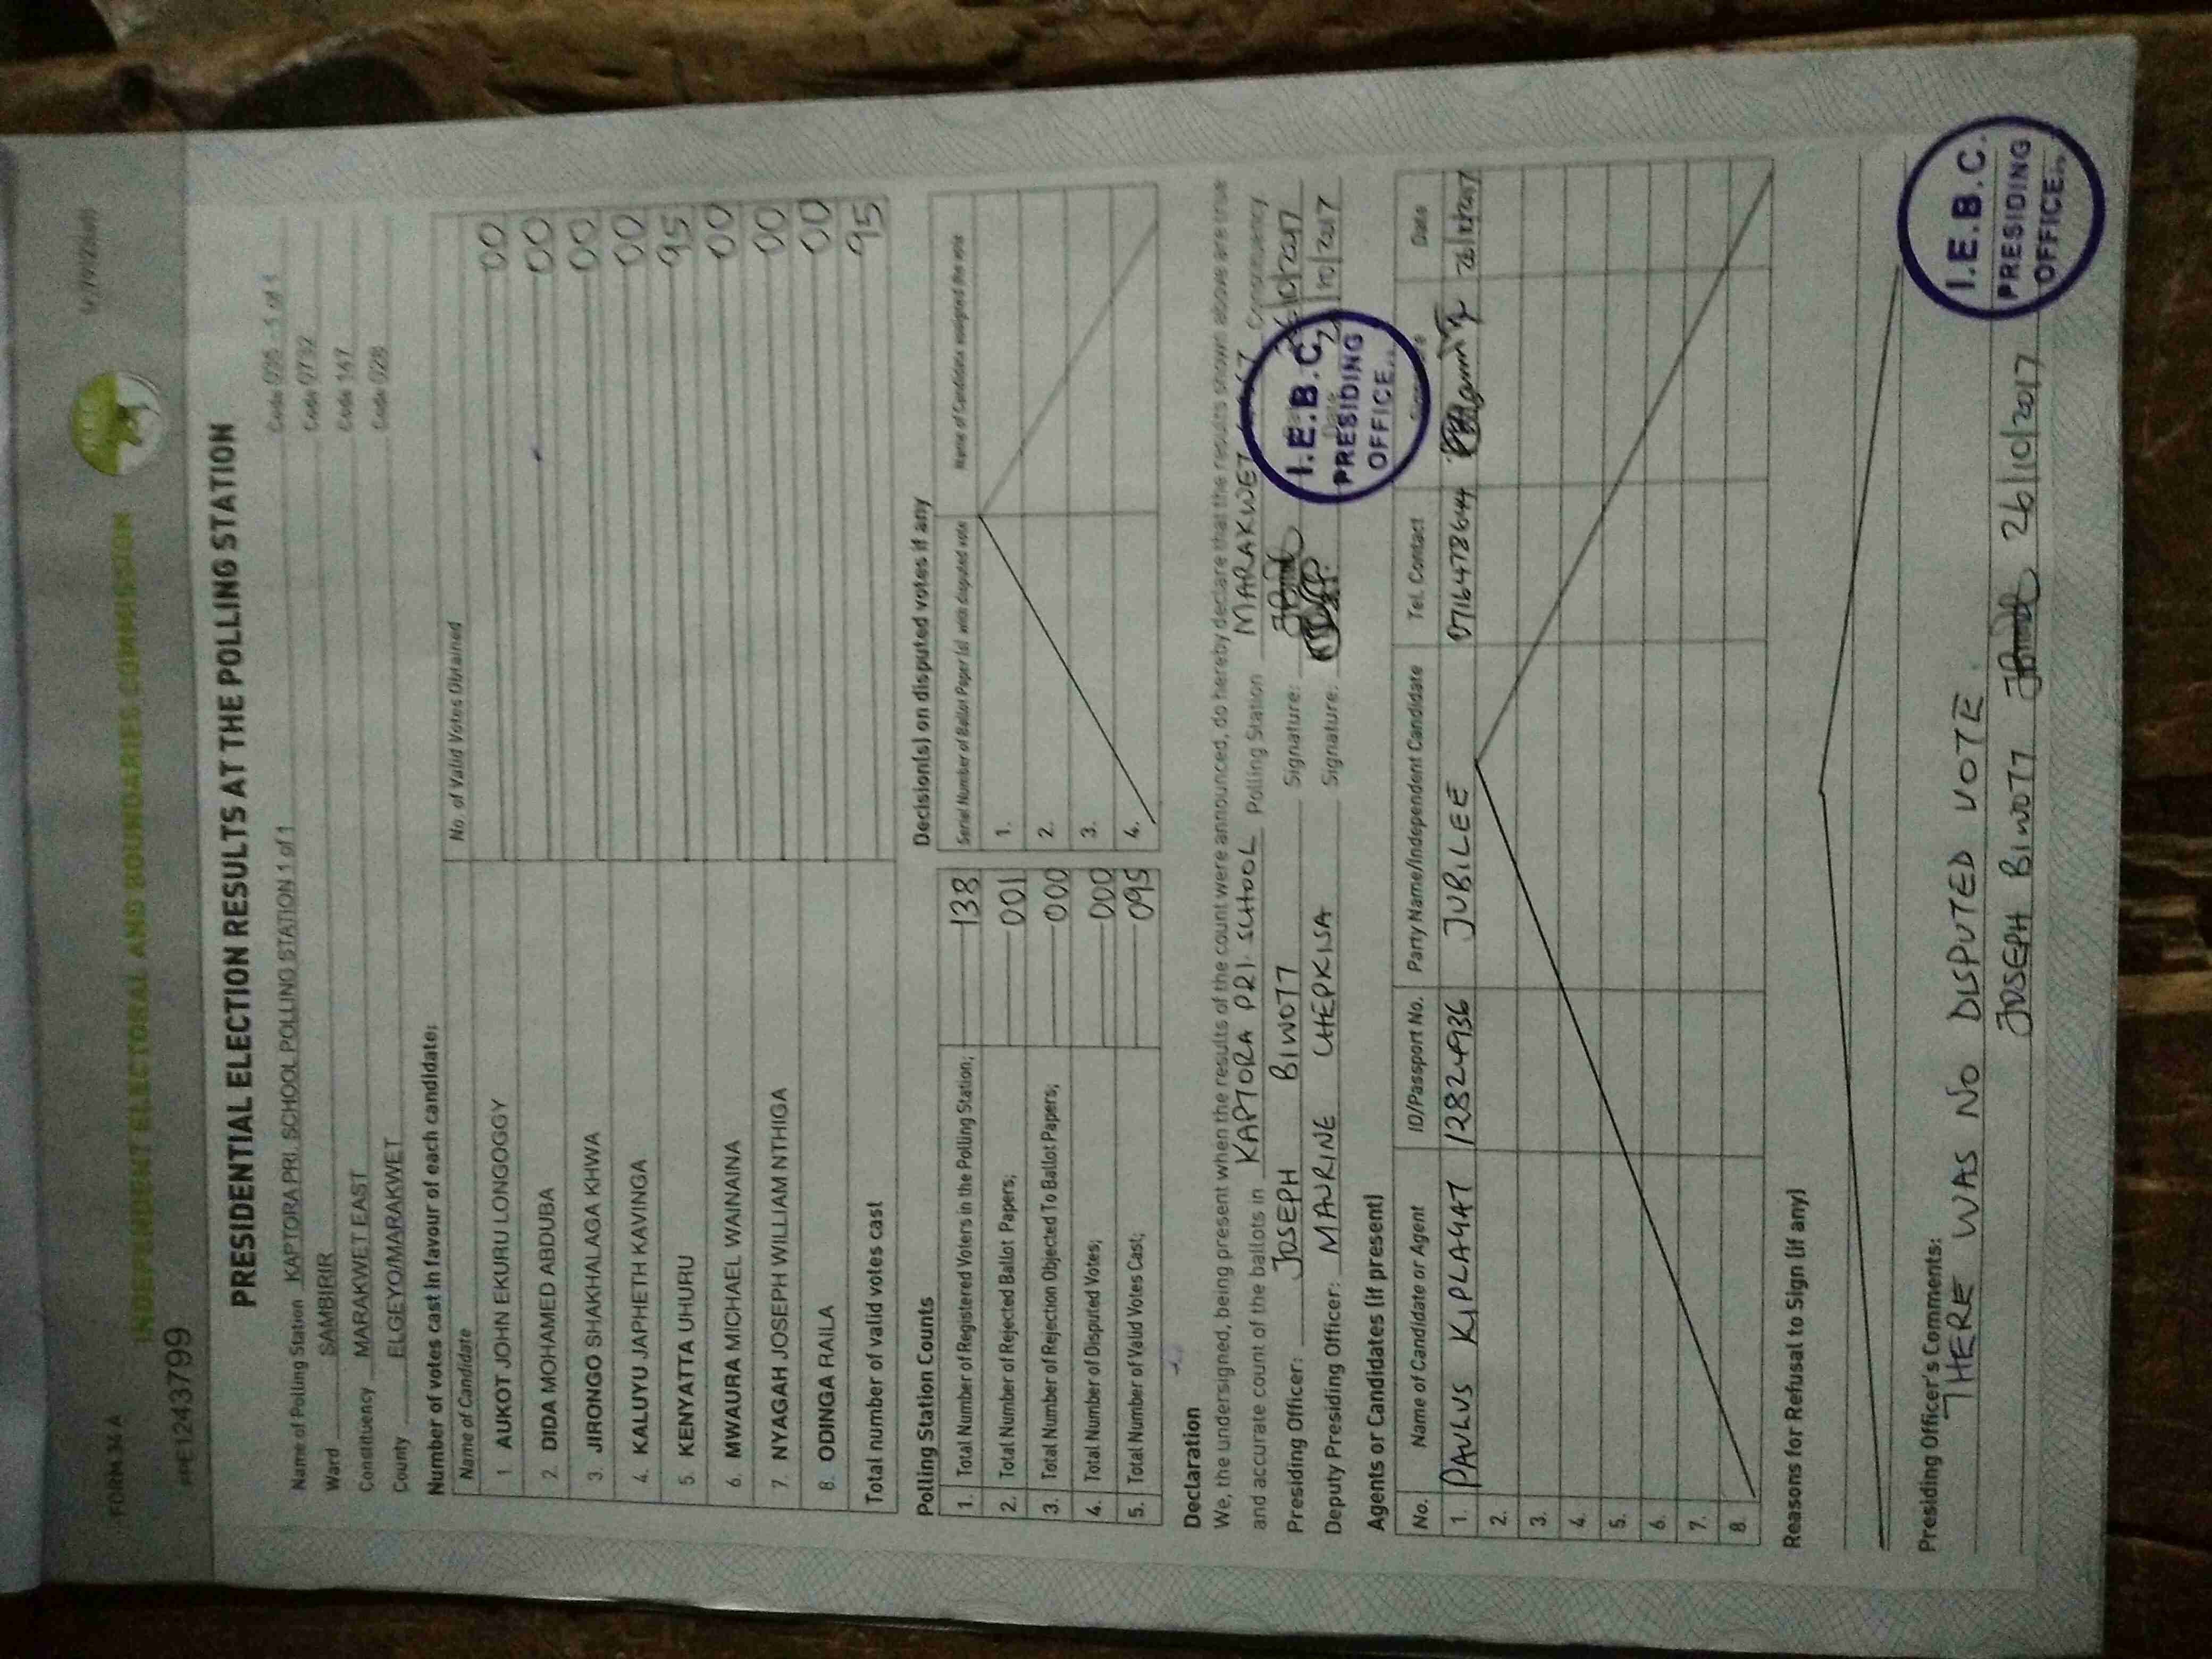 FORM 34A
INDEPENDENT ELECTORAL AND BOUNDARIES COMMISSION
PRESIDENTIAL ELECTION RESULTS AT THE POLLING STATION
Name of Polling Station KAPTORA PRI. SCHOOL POLLING STATION 1 of 1 Code 035 - 1 of 1
Ward SAMBIRIR Code 0732
Constituency MARAKWET EAST Code 147
County ELGEYO/MARAKWET Code 028
Number of votes cast in favour of each candidate:
Name of Candidate No. of Valid Votes Obtained
1. AUKOT JOHN EKURU LONGOGGY 00
2. DIDA MOHAMED ABDUBA 00
3. JIRONGO SHAKHALAGA KHWA 00
4. KALUYU JAPHETH KAVINGA 00
5. KENYATTA UHURU 95
6. MWAURA MICHAEL WAINAINA 00
7. NYAGAH JOSEPH WILLIAM NTHIGA 00
8. ODINGA RAILA 00
Total number of valid votes cast 95
Polling Station Counts
1. Total Number of Registered Voters in the Polling Station; 138
2. Total Number of Rejected Ballot Papers; 001
3. Total Number of Rejection Objected To Ballot Papers; 000
4. Total Number of Disputed Votes; 000
5. Total Number of Valid Votes Cast; 095
Decision(s) on disputed votes if any
Serial Number of Ballot Paper (s) with disputed vote Name of Candidate assigned the vote
1.
2.
3.
4.
Declaration
We, the undersigned, being present when the results of the count were announced, do hereby declare that the results shown above are true
and accurate count of the ballots in KAPTORA PRI. SCHOOL Polling Station MARAKWET Constituency
Presiding Officer: JOSEPH BIWOTT Signature: 26/10/2017
Deputy Presiding Officer: MAURINE CHEPKISA Signature: 10/2017
I.E.B.C.
PRESIDING
OFFICE
Agents or Candidates (if present)
No. Name of Candidate or Agent ID/Passport No. Party Name/Independent Candidate Tel. Contact Date
1. PAULUS KIPLAGAT 12824936 JUBILEE 0716473644 26/10/2017
2.
3.
4.
5.
6.
7.
8.
Reasons for Refusal to Sign (if any)
Presiding Officer's Comments:
THERE WAS NO DISPUTED VOTE.
JOSEPH BIWOTT 26/10/2017
I.E.B.C.
PRESIDING
OFFICE